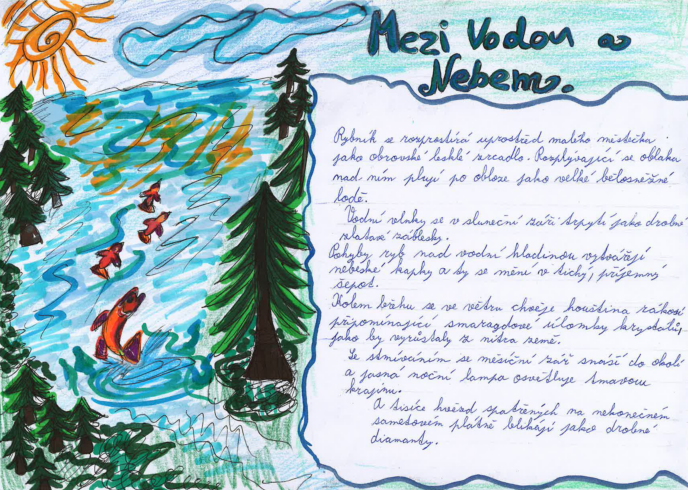 Mezi Vodou a
Nebem.
Rybník se rozprostírá uprostřed malého městečka
jako obrovské lesklé zrcadlo. Rozplývající se oblaka
nad ním plují po obloze jako velké bělosněžné
lodě.
Vodní vlnky se v sluneční záři třpytí jako drobné
zlatavé záblesky.
Pohyby ryb nad vodní hladinou vytvářejí
nebeské kapky a ty se mění v tichý, příjemný
šepot.
Kolem břehu se ve větru chvěje houština rákosí
připomínající smaragdové úlomky krystalů,
jako by vyrůstaly z nitra země.
Se stmíváním se měsíční zář snáší do okolí
a jasná noční lampa osvětluje tmavou
krajinu.
A tisíce hvězd spatřených na nekonečném
sametovém plátně blikají jako drobné
diamanty.